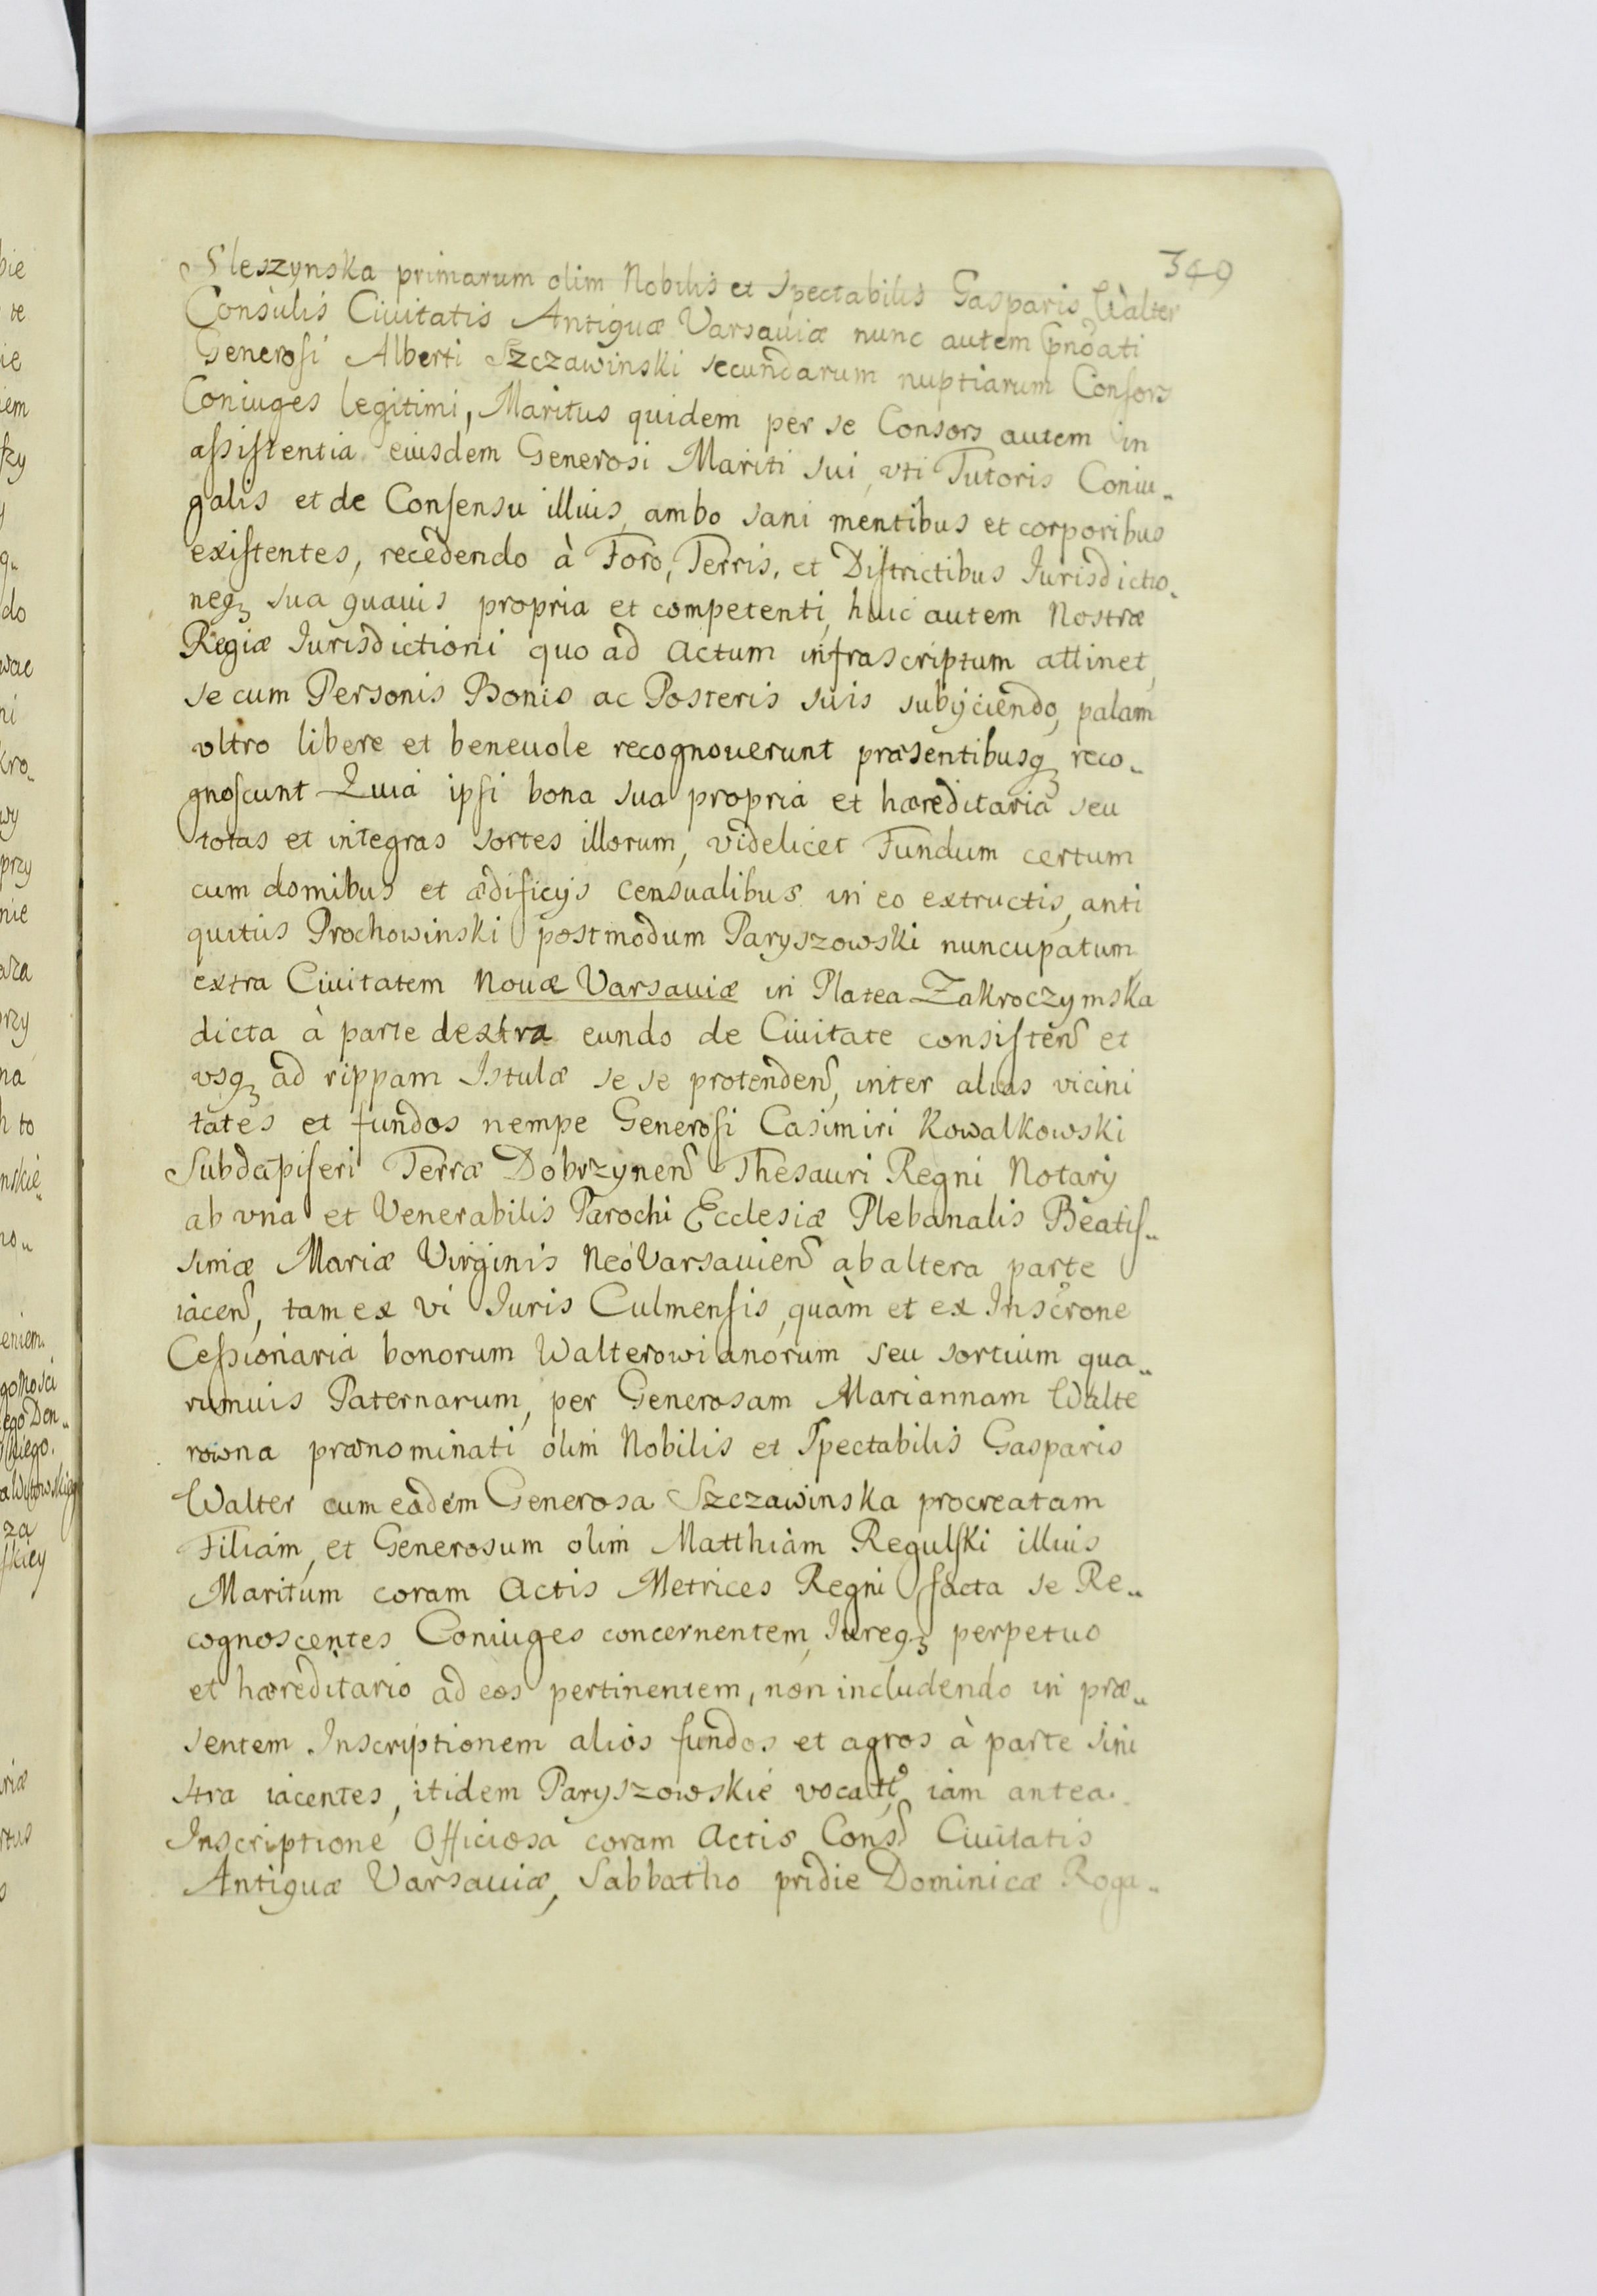 349
Sleszynska primarum olim Nobilis et Spectabilis Gasparis Walter
Consulis Ciuitatis Antiquæ Varsauiæ nunc autem
Generosi Alberti Szczawinski secundarum nuptiarum Consors
Coniuges legitimi, Maritus quidem per se Consors autem in
aſsiſtentia eiusdem Generosi Mariti sui, vti Tutoris Coniu„
galis et de Conſensu illius, ambo sani mentibus et corporibus
exiſtentes, recedendo à Foro, Terris, et Diſtrictibus Iurisdictio„
neqꝫ sua quauis propria et competenti, huic autem Nostræ
Regiæ Iurisdictioni quo ad Actum infrascriptum attinet,
se cum Personis Bonis ac Posteris suis subijciendo, palam
vltro libere et beneuole recognouerunt præsentibusqꝫ reco„
gnoſcunt Quia ipſi bona sua propria et hæreditaria seu
totas et integras sortes illorum, videlicet Fundum certum
cum domibus et ædificijs censualibus in eo extructis, anti
quitus Prochowinski postmodum Paryszowski nuncupatum
extra Ciuitatem Nouæ Varsauiæ in Platea Zakroczymska
dicta à parte dextra eundo de Ciuitate consiſten̄ et
vsqꝫ ad rippam Istulæ se se protenden̄, inter alias vicini
tates et fundos nempe Generoſi Casimiri Kowalkowski
Subdapiferi Terræ Dobrzynen̄ Thesauri Regni Notarij
ab vna et Venerabilis Parochi Ecclesiæ Plebanalis Beatiſ„
simæ Mariæ Virginis NeoVarsauien̄ ab altera parte
iacen̄, tam ex vi Iuris Culmenſis, quàm et ex Inscrone
Ceſsionaria bonorum Walterowianorum seu sortium qua„
rumuis Paternarum, per Generosam Mariannam Walte
rowna prænominati olim Nobilis et Spectabilis Gasparis
Walter cum eadem Generosa Szczawinska procreatam
Filiam, et Generosum olim Matthiam Regulſki illius
Maritum coram Actis Metrices Regni facta se Re„
cognoscentes Coniuges concernentem, Iureqꝫ perpetuo
et hæreditario ad eos pertinentem, non includendo in præ„
sentem Inscriptionem alios fundos et agros à parte sini
stra iacentes, itidem Paryszowskie vocatt̄ iam antea
Inscriptione Officiosa coram Actis Cons̄ Ciuitatis
Antiquæ Varsauiæ, Sabbatho pridie Dominicæ Roga„